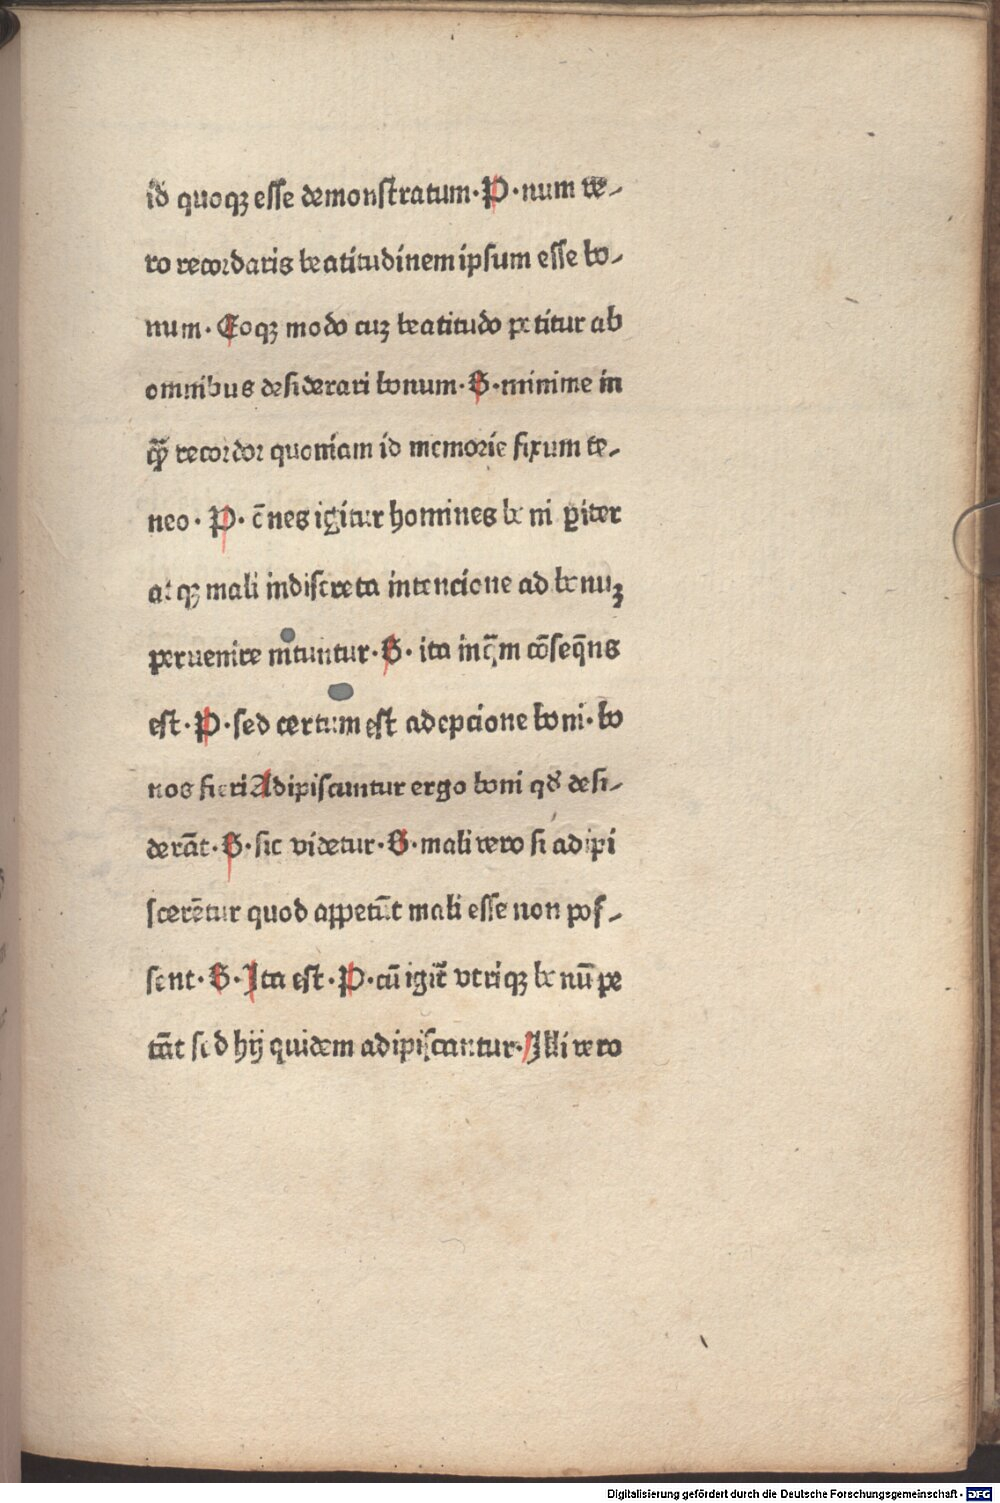 id quoqꝫ esse demonstratum·P·num ve-
ro recordaris beatitudinem ipsum esse bo-
num·Eoqꝫ modo cuꝫ beatitudo petitur ab
omnibus desiderari bonum·B·minime in
qm̄ recordor quoniam id memorie fixum te-
neo·P·ōnes igitur homines boni ꝑiter
atqꝫ mali indiscreta intencione ad bonuꝫ
peruenire nituntur·B·ita inq̄m cōseq̄ns
est·P·sed certum est adepcione boni·bo
nos fieri Adipiscuntur ergo boni qd̛ desi-
derāt·B·sic videtur·B·mali vero si adipi
scerētur quod appetūt mali esse non pos-
sent·B·Ita est·P·cū igit̄ vtriqꝫ bonū pe
tāt sed hij quidem adipiscantur·Illi vero
Digitalisierung gefördert durch die Deutsche Forschungsgemeinschaft - DFG